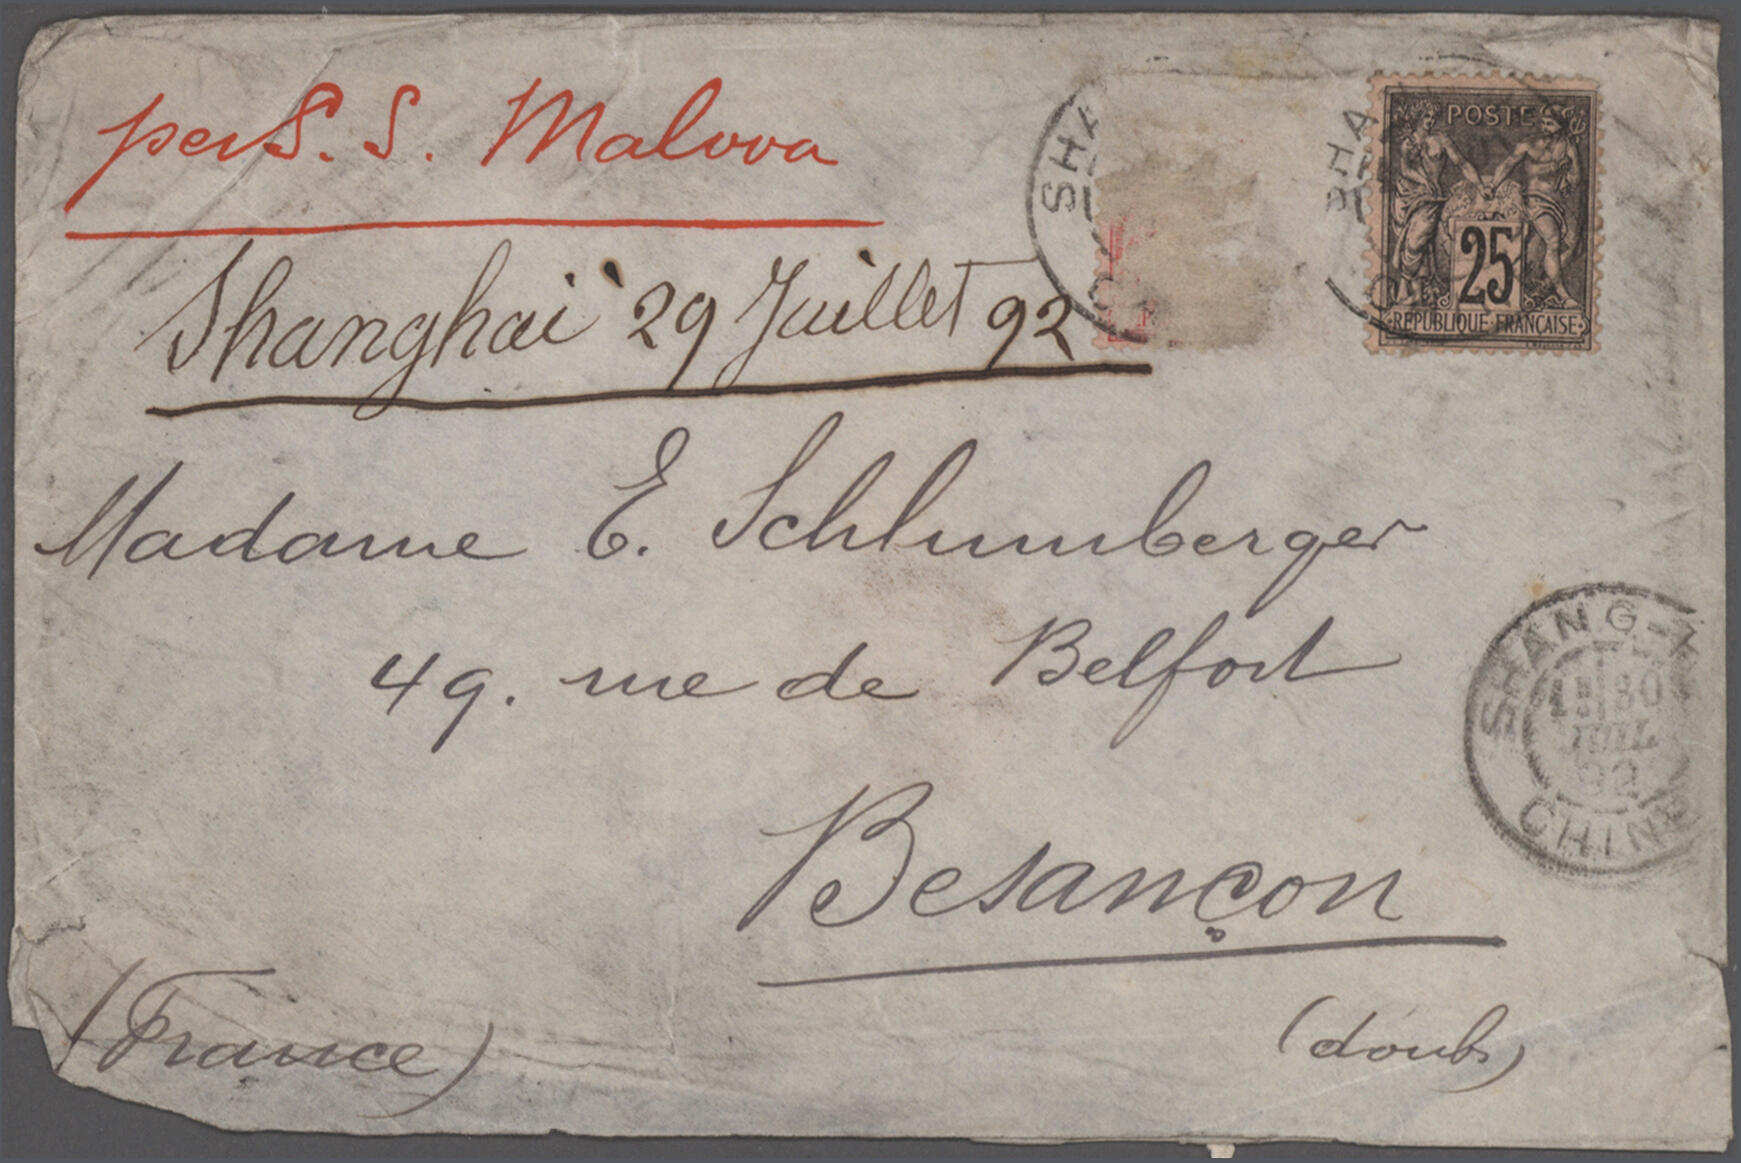 per S. S. Malwa
SHA
SHA
POSTE
25
REPUBLIQUE FRANÇAISE
Shanghai 29 Juillet 92
Madame E. Schlumberger
49. rue de Belfort
SHANG-H
30
JUIL
92
CHINE
Besançon
(France)
(doubs)